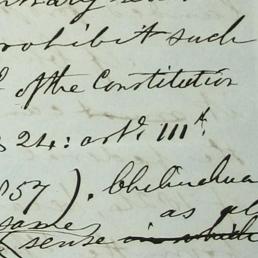 rohibit such
of the Constitution
24: art. 111th
857). Chihuahua
same as
(sense in which